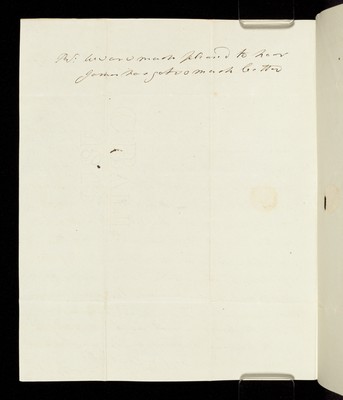 PS. we are much pleased to hear
James has got so much better